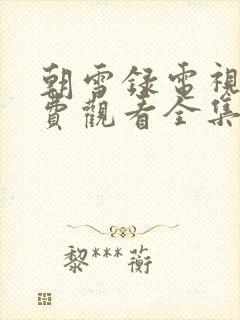 朝雪録電視
費觀看全集
黎***蘅